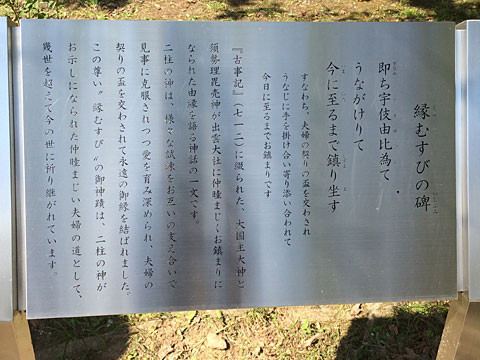 縁むすびの碑
即ち宇伎由比為て
うながけりて
今に至るまで鎮り坐す
すなわち、夫婦の契りの盃を交わされ
うなじに手を掛け合い寄り添い合われて
今日に至るまでお鎮まりです
『古事記』(七一二)に綴られた、大国主大神と
須勢理毘売神が出雲大社に仲睦まじくお鎮まりに
なられた由縁を語る神話の一文です。
二柱の神は、様々な試練をお互いの支え合いで
見事に克服されつつ愛を育み深められ、夫婦の
契りの盃を交わされて永遠の御縁を結ばれました。
この尊い〝縁むすび〟の御神蹟は、二柱の神が
お示しになられた仲睦まじい夫婦の道として、
幾世を超えて今の世に祈り継がれています。